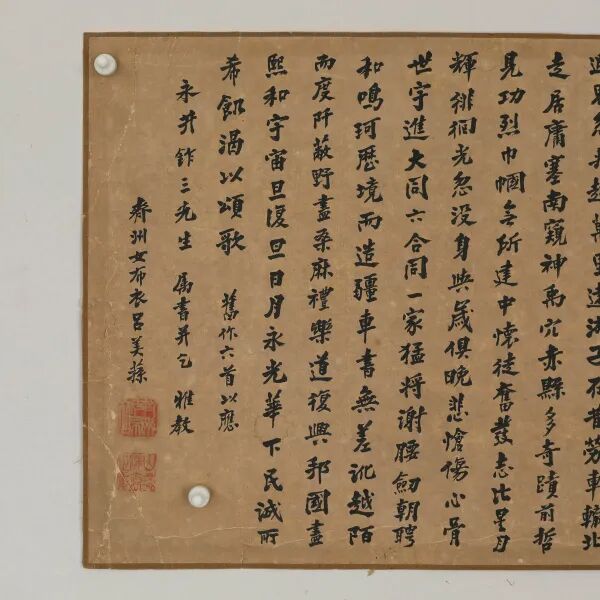 萬里遠 昔勞車轍北
走居庸塞南窺神禹穴赤縣多奇蹟前哲
見功烈巾幗無所建中懷徒奮發志比星月
輝徘徊光忽没身與歲俱晚悲愴傷心骨
世宇進大同六合同一家猛將謝腰劍朝聘
和鳴珂歷境而造疆車書無差訛越陌
而度阡蔽野盡桑麻禮樂道復興邦國盡
熙和宇宙旦復旦日月永光華下民誠所
希飢渴以頌歌 舊作六首以應
永井鈼三先生 属書并乞 雅教
齊州女布衣呂美蓀